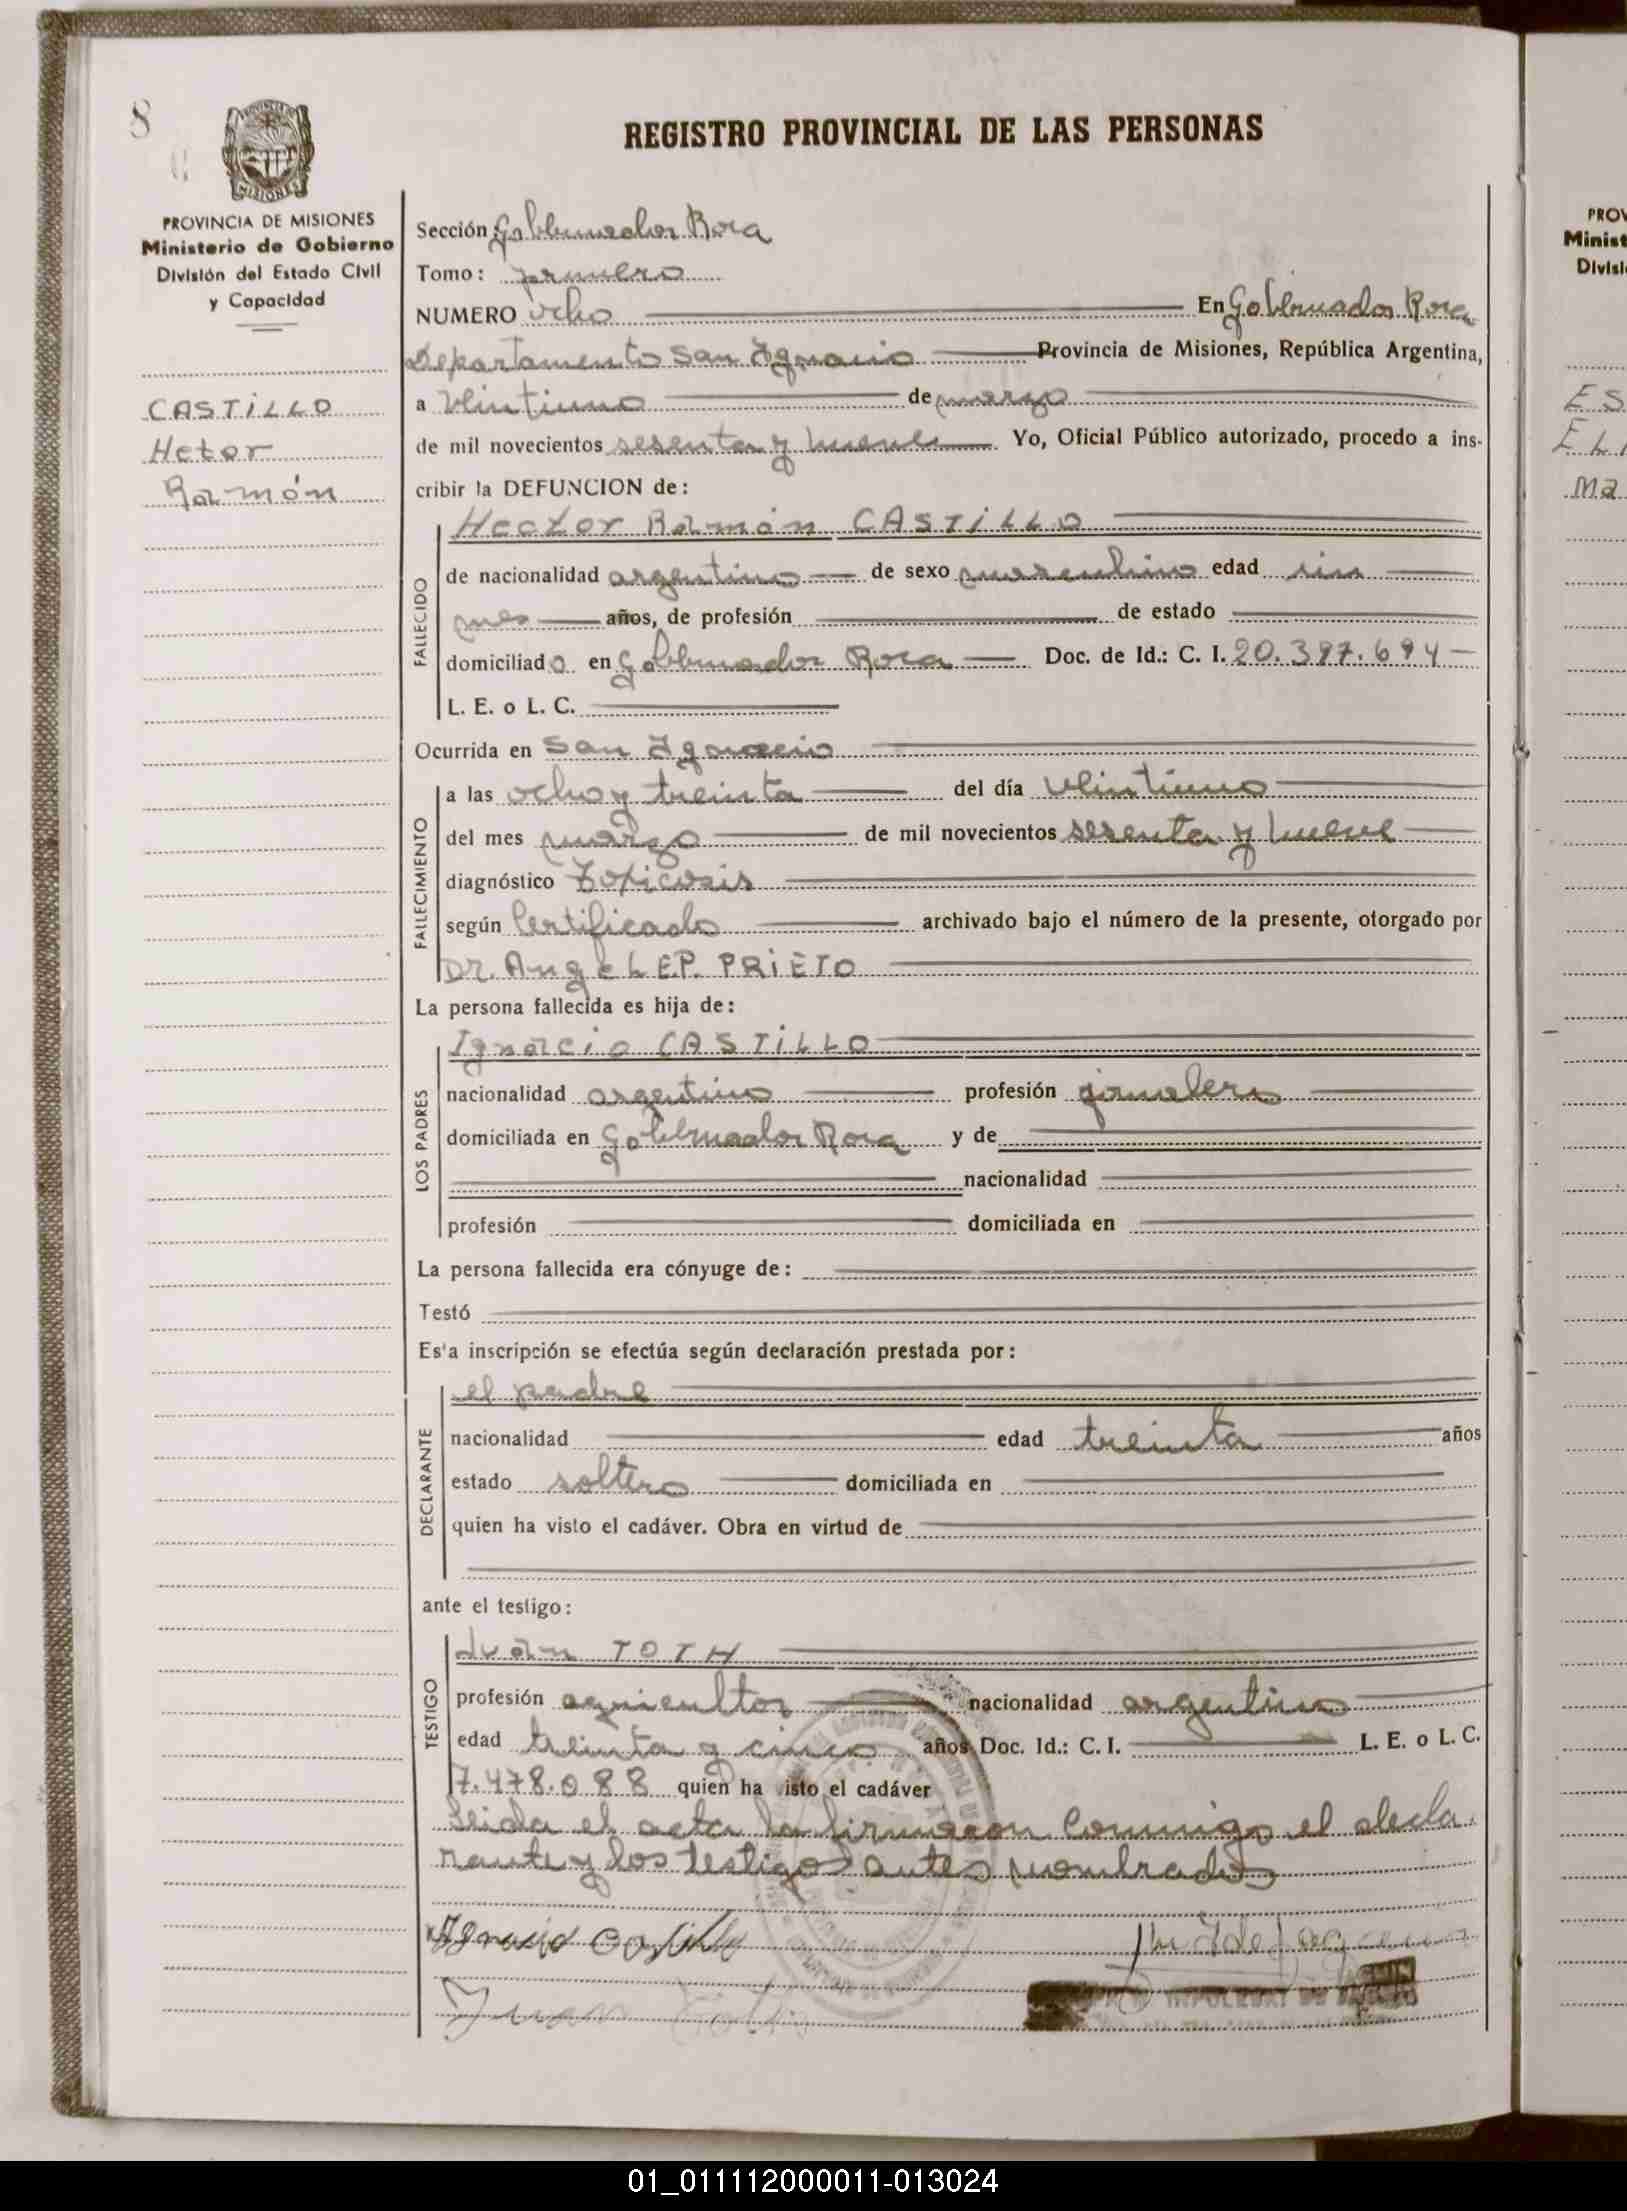 8
REGISTRO PROVINCIAL DE LAS PERSONAS
PROVINCIA DE MISIONES
Ministerio de Gobierno
División del Estado Civil
y Capacidad
CASTILLO
Hctor
Ramón
Sección Gobernador Roca
Tomo: primero
NUMERO ocho En Gobernador Roca
Departamento San Ignacio Provincia de Misiones, República Argentina,
a veintiuno de marzo
de mil novecientos sesenta y nueve Yo, Oficial Público autorizado, procedo a ins-
cribir la DEFUNCION de:
FALLECIDO
Hector Ramón CASTILLO
de nacionalidad argentino de sexo masculino edad un
mes años, de profesión de estado
domiciliado en Gobernador Roca Doc. de Id.: C. I. 20.397.694
L. E. o L. C.
Ocurrida en San Ignacio
FALLECIMIENTO
a las ocho y treinta del día veintiuno
del mes marzo de mil novecientos sesenta y nueve
diagnóstico Toxicosis
según Certificado archivado bajo el número de la presente, otorgado por
Dr. Angel E.P. PRIETO
La persona fallecida es hija de:
LOS PADRES
Ignacio CASTILLO
nacionalidad argentino profesión jornalero
domiciliada en Gobernador Roca y de
nacionalidad
profesión domiciliada en
La persona fallecida era cónyuge de:
Testó
Esta inscripción se efectúa según declaración prestada por:
DECLARANTE
el padre
nacionalidad edad treinta años
estado soltero domiciliada en
quien ha visto el cadáver. Obra en virtud de
ante el testigo:
TESTIGO
Juan TOTH
profesión agricultor nacionalidad argentino
edad treinta y cinco años Doc. Id.: C. I. L. E. o L. C.
7.478.088 quien ha visto el cadáver
Leida el acta la firmaron conmigo el decla-
rante y los testigos antes nombrados
Ignacio Castillo
Juan Toth
PROV
Minist
Divisi
ES
EL
Ma
01_011112000011-013024